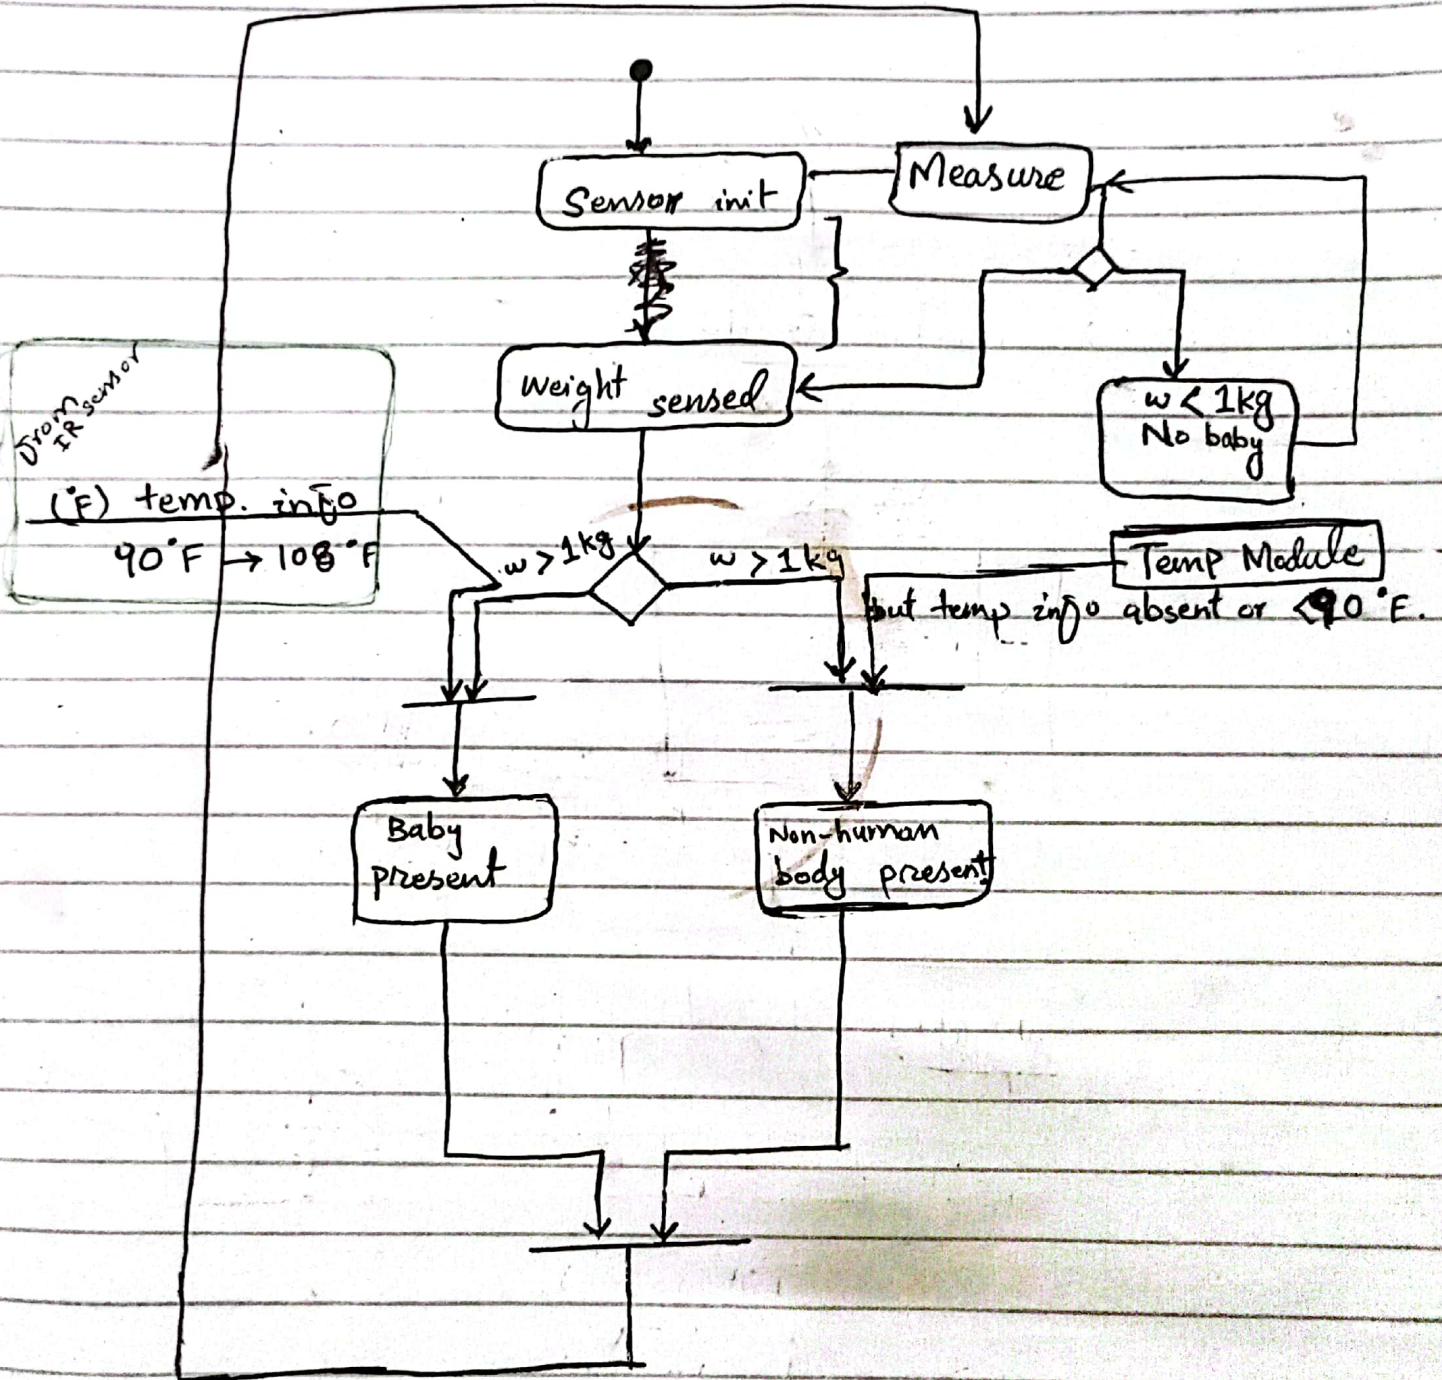 Sensor init
Measure
weight sensed
w < 1kg
No baby
From
IR sensor
(°F) temp. info
90°F → 108°F
w > 1kg
w > 1kg
Temp Module
but temp info absent or <90°F.
Baby
present
Non-human
body present